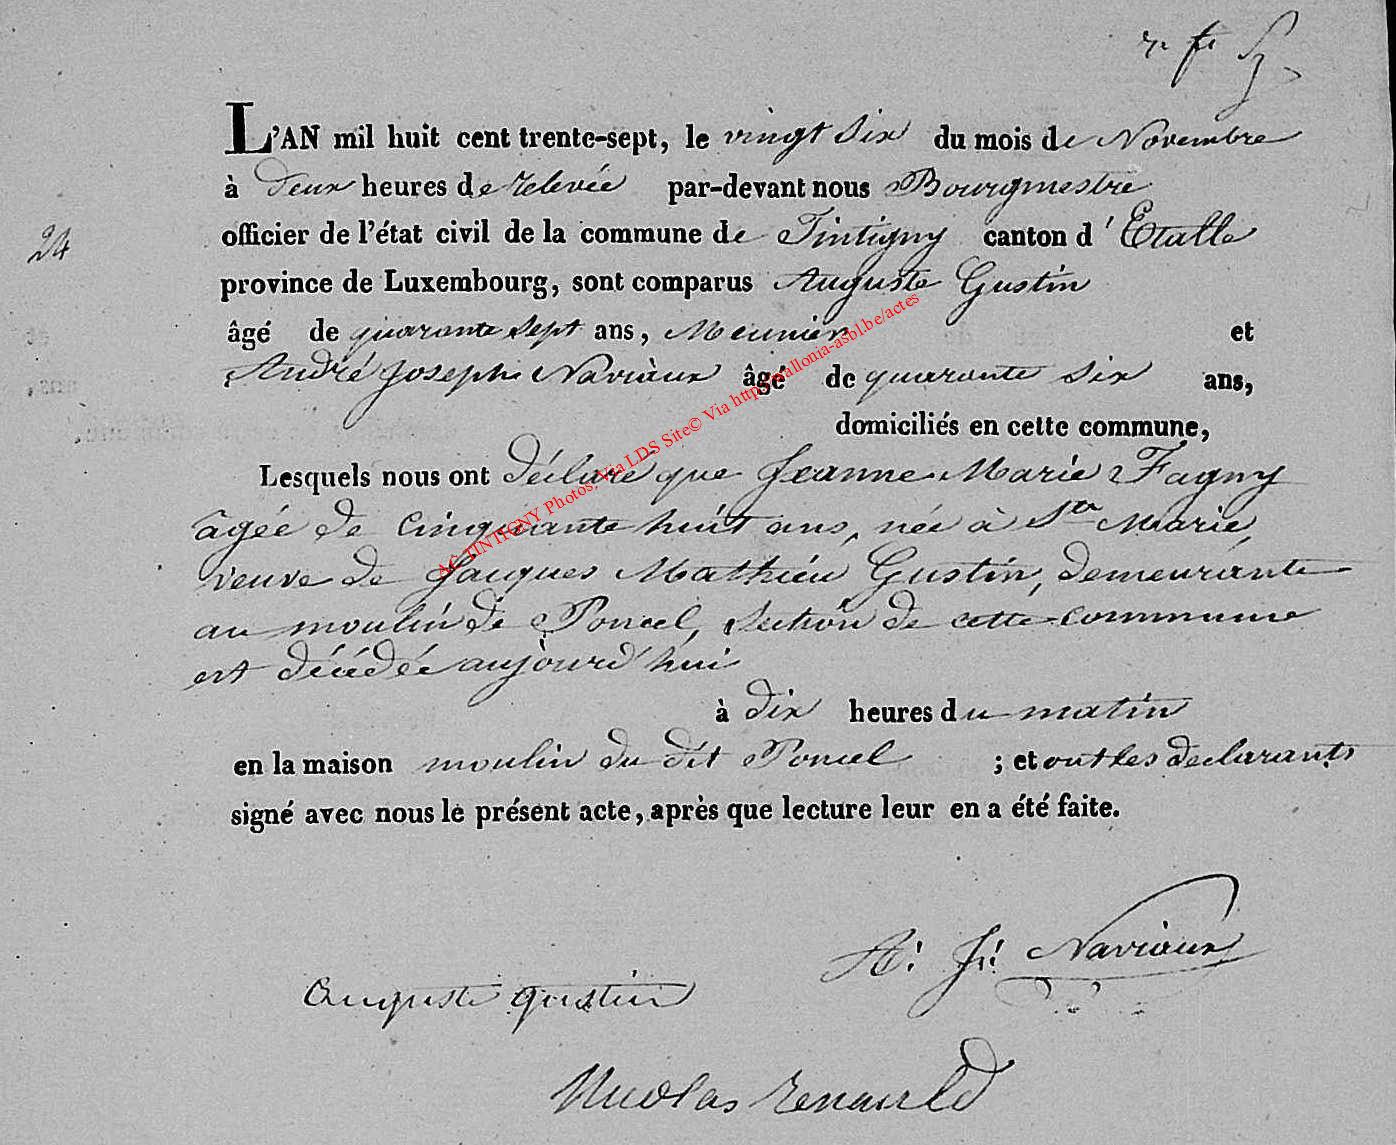 L'AN mil huit cent trente-sept, le vingt six du mois de Novembre
à deux heures de relevée par-devant nous Bourgmestre
officier de l'état civil de la commune de Tintigny canton d'Etalle
24
province de Luxembourg, sont comparus Auguste Gustin
âgé de quarante sept ans, Meunier et
André Joseph Naviaux âgé de quarante six ans,
domiciliés en cette commune,
Lesquels nous ont déclaré que Jeanne Marie Fagny
âgée de cinquante huit ans, née à Ste Marie,
veuve de Jacques Mathieu Gustin, demeurante
au moulin de Poncel, section de cette commune
est décédée aujourd'hui
à dix heures du matin
en la maison moulin du dit Poncel ; et ont les declarants
signé avec nous le présent acte, après que lecture leur en a été faite.
AC TINTIGNY Photos Via LDS Site© Via http://wallonia-asbl.be/actes
A. J. Naviaux
Auguste gustin
Nicolas Renauld